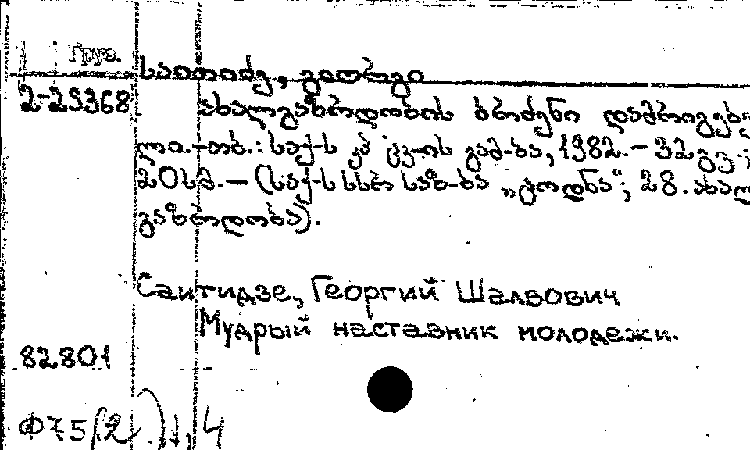 Груз.
საითიძე, გიორგი
2-29368
ახალგაზრდობის ბრძენი დამრიგებე
ლი.-თბ.: საქ-ს კპ ცკ-ის გამ-ბა, 1982.- 32 გვ.;
20 სმ.- (საქ-ს სსრ საზ-ბა „ცოდნა“; 28. ახალ
გაზრდობა).
Саитидзе, Георгий Шалвович
Мудрый наставник молодежи.
82801